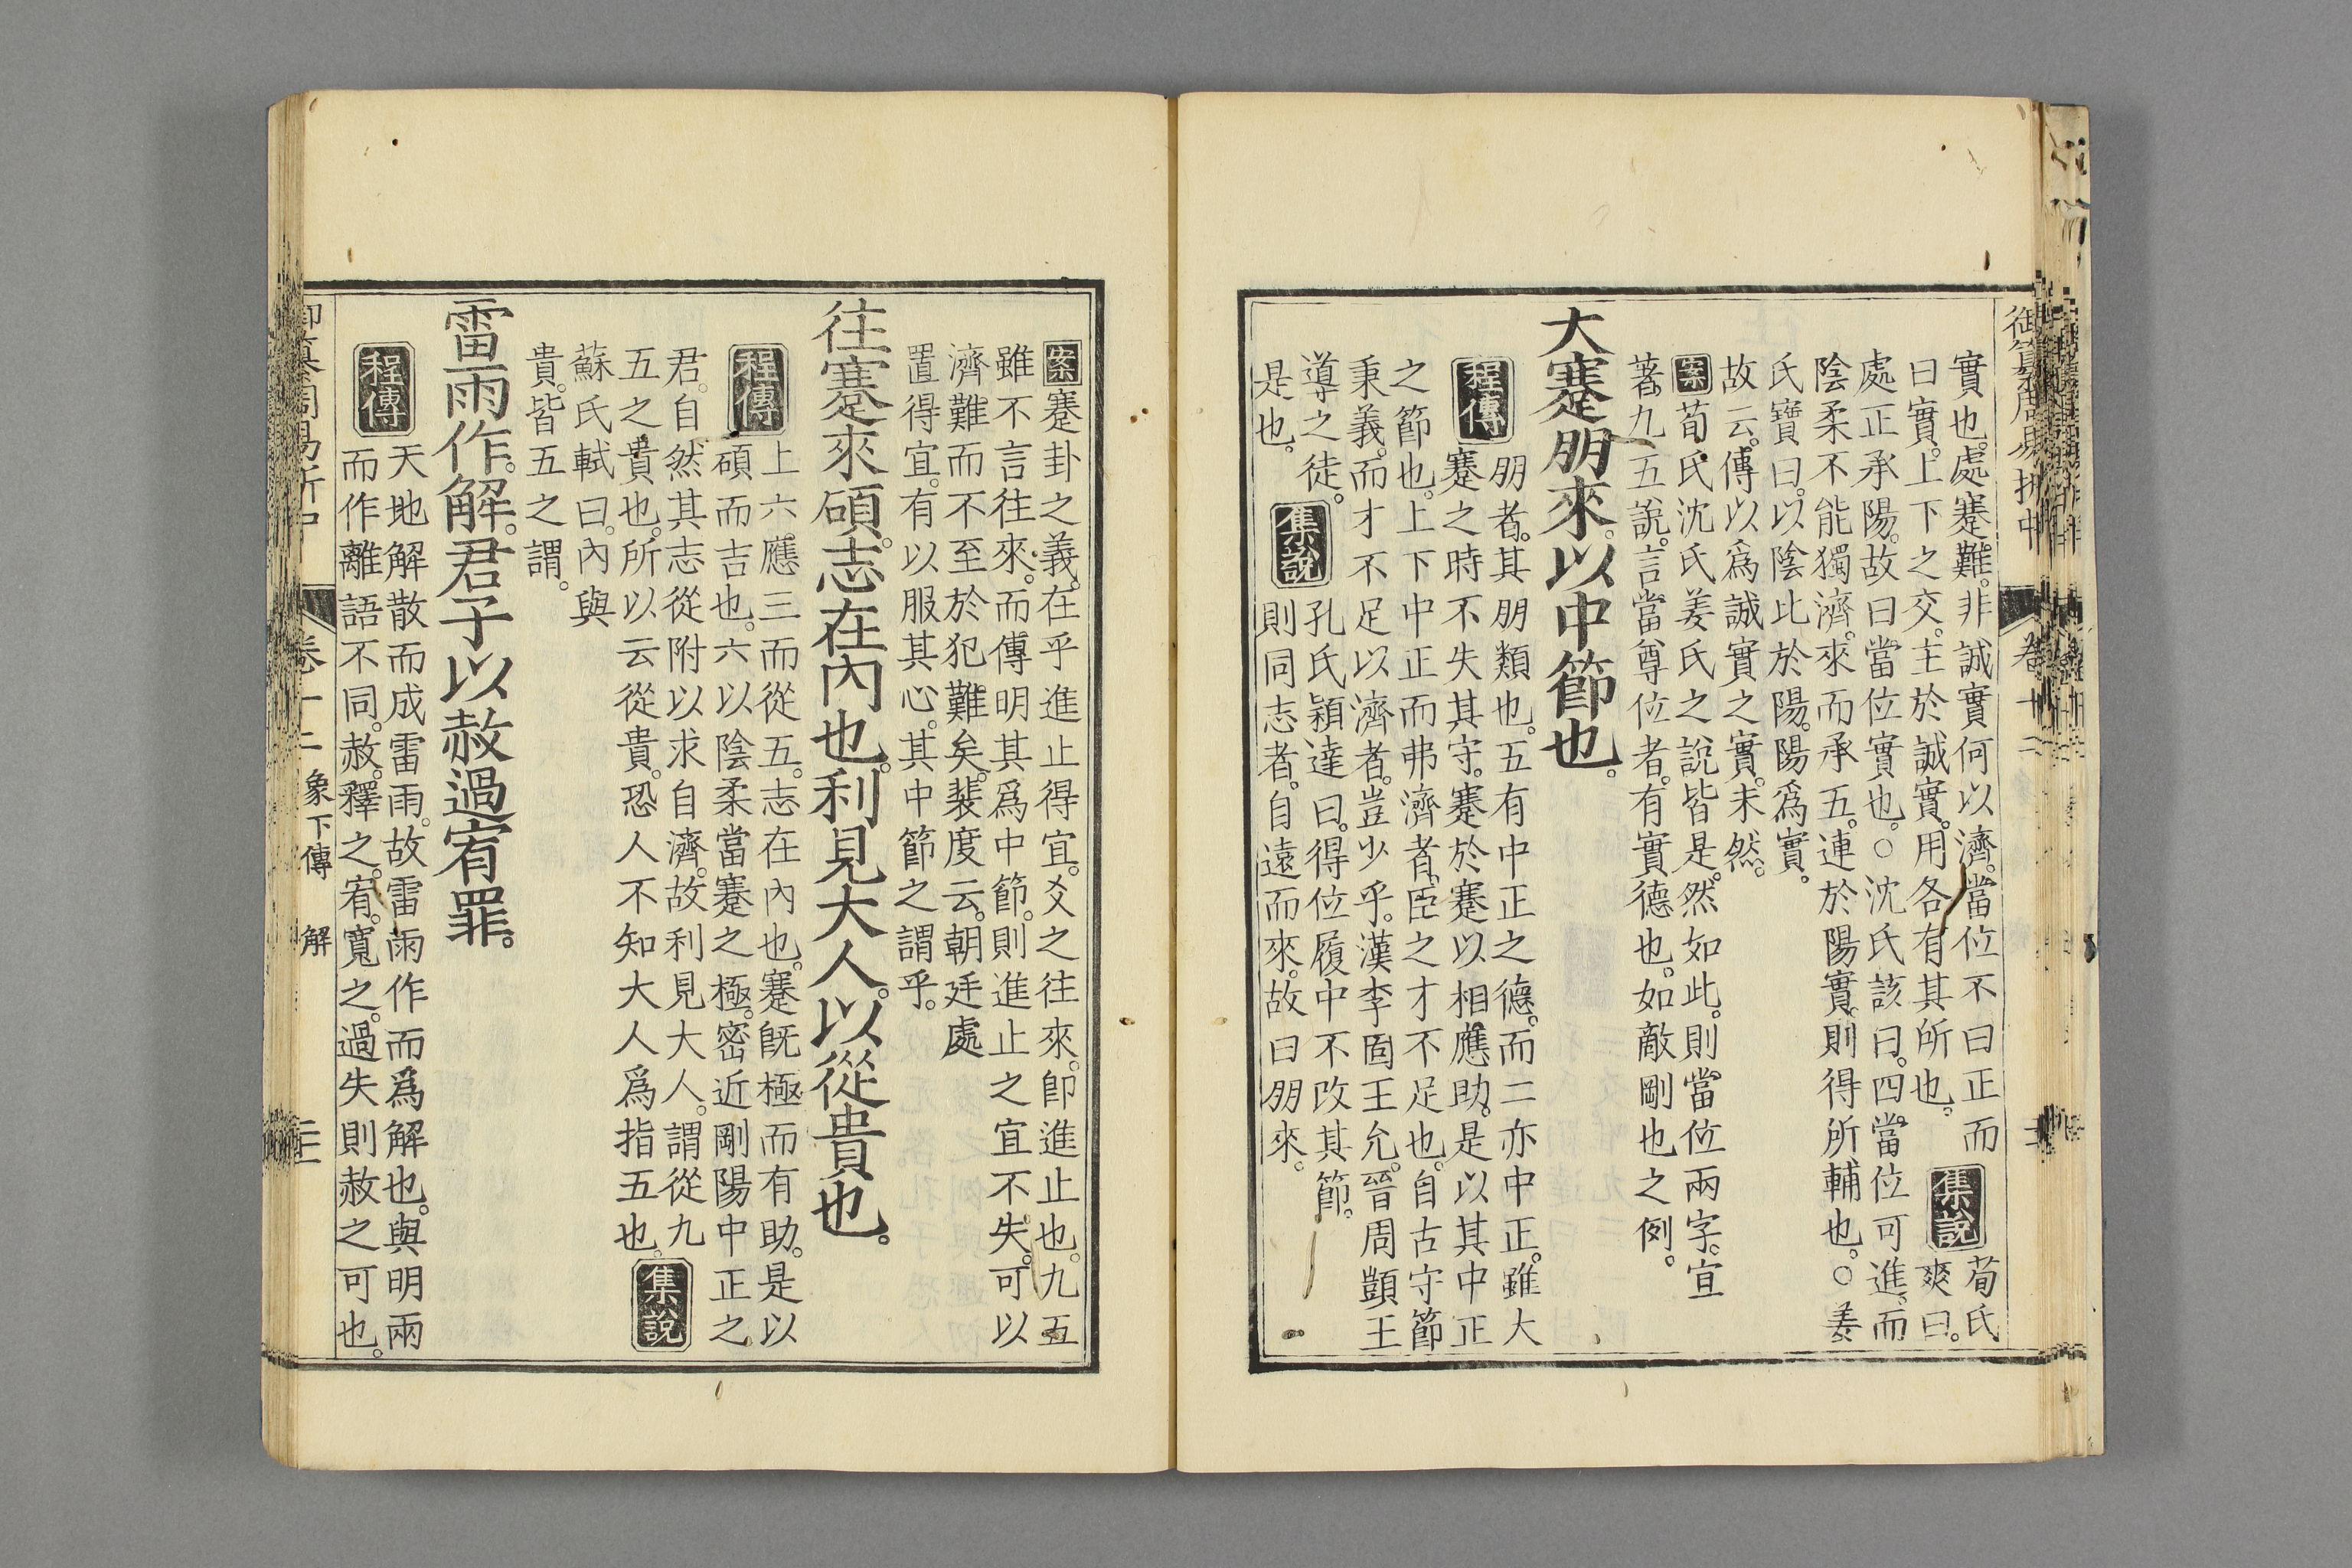 御纂周易折中
卷十二
實也。處蹇難。非誠實何以濟。當位不曰正而
曰實。上下之交。主於誠實。用各有其所也。
集說
荀氏
爽曰。
處正承陽。故曰當位實也。○沈氏該曰。四當位可進。而
陰柔不能獨濟。來而承五。連於陽實。則得所輔也。○姜
氏寶曰。以陰比於陽。陽爲實。
故云。傳以爲誠實之實。未然。
案荀氏沈氏姜氏之說皆是。然如此。則當位兩字。宜
著九五說。言當尊位者。有實德也。如敵剛也之例。
大蹇朋來。以中節也。
程傳
朋者。其朋類也。五有中正之德。而二亦中正。雖大
蹇之時不失其守。蹇於蹇以相應助。是以其中正
之節也。上下中正而弗濟者。臣之才不足也。自古守節
秉義。而才不足以濟者。豈少乎。漢李固王允。晉周顗王
導之徒。
是也。
集說
孔氏穎達曰。得位履中不改其節。
則同志者。自遠而來。故曰朋來。
案蹇卦之義。在乎進止得宜。爻之往來。卽進止也。九五
雖不言往來。而傳明其爲中節。則進止之宜不失。可以
濟難而不至於犯難矣。裴度云。朝廷處
置得宜。有以服其心。其中節之謂乎。
往蹇來碩。志在內也。利見大人。以從貴也。
程傳
上六。應三而從五。志在內也。蹇旣極而有助。是以
碩而吉也。六以陰柔當蹇之極。密近剛陽中正之
君。自然其志從附以求自濟。故利見大人。謂從九
五之貴也。所以云從貴。恐人不知大人爲指五也。
集說
蘇氏軾曰。內與
貴。皆五之謂。
雷雨作。解。君子以赦過宥罪。
程傳
天地解散而成雷雨。故雷雨作而爲解也。與明兩
而作離語不同。赦。釋之。宥。寬之。過失則赦之可也。
御纂周易折中
卷十二
象下傳
解